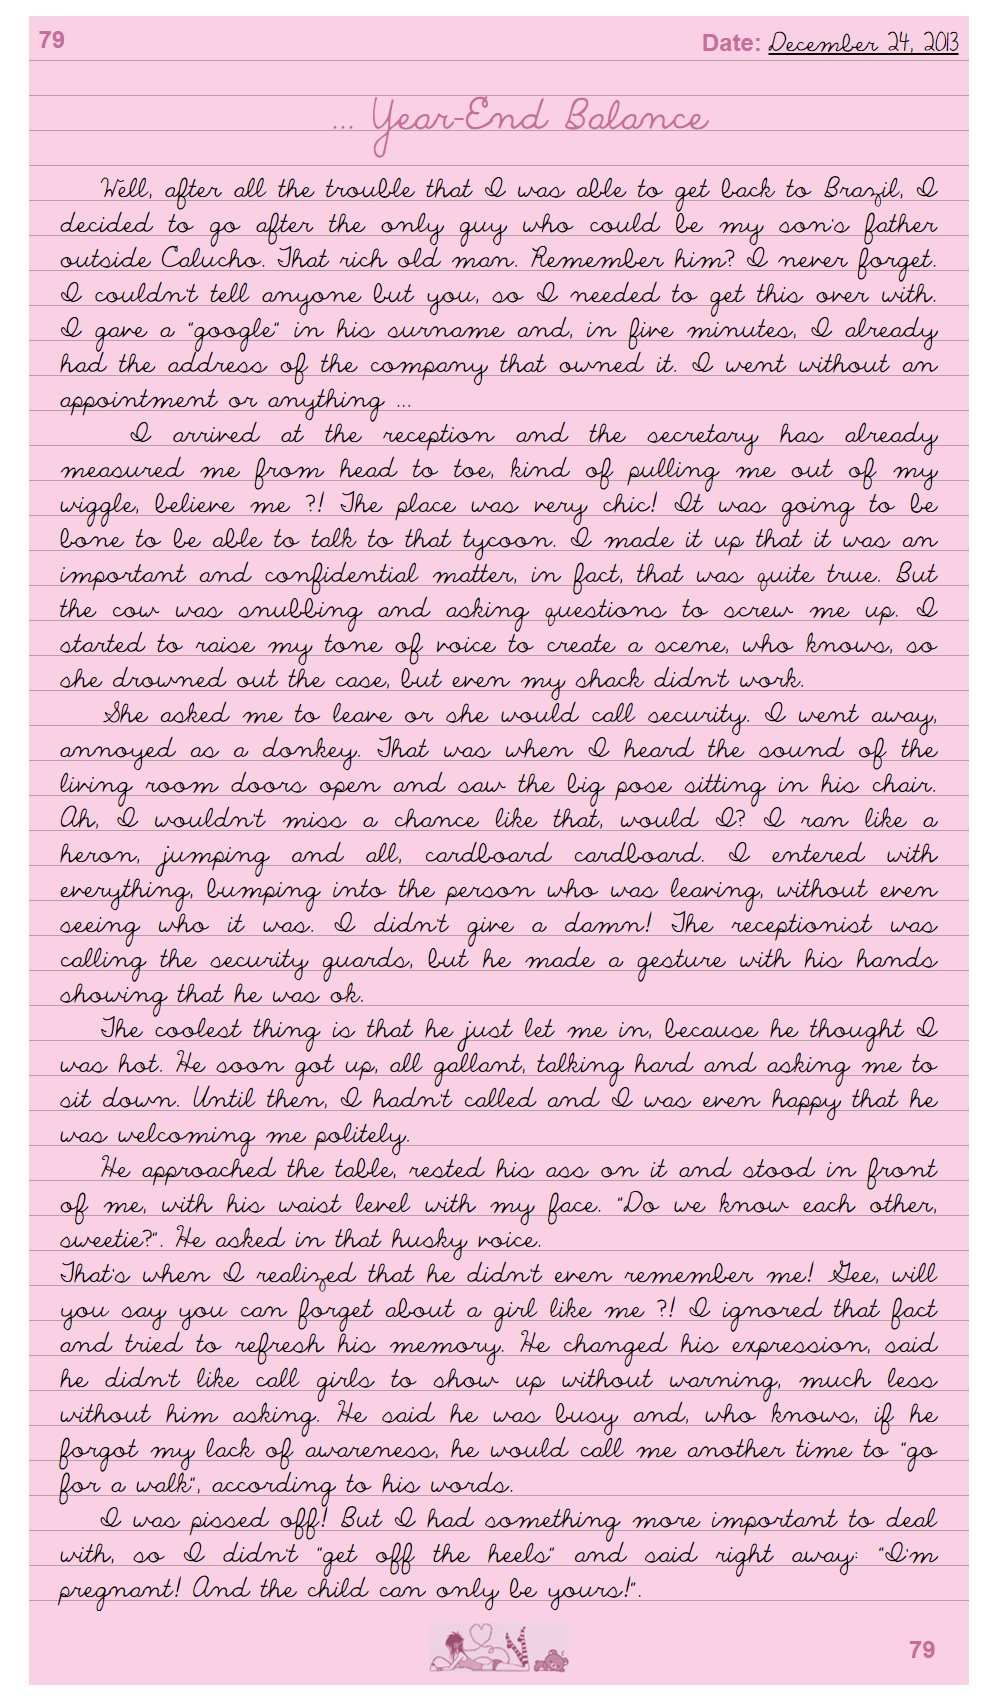 79
Date: December 24, 2013
... Year-End Balance
Well, after all the trouble that I was able to get back to Brazil, I
decided to go after the only guy who could be my son's father
outside Calucho. That rich old man. Remember him? I never forget.
I couldn't tell anyone but you, so I needed to get this over with.
I gave a "google" in his surname and, in five minutes, I already
had the address of the company that owned it. I went without an
appointment or anything ...
I arrived at the reception and the secretary has already
measured me from head to toe, kind of pulling me out of my
wiggle, believe me ?! The place was very chic! It was going to be
bone to be able to talk to that tycoon. I made it up that it was an
important and confidential matter, in fact, that was quite true. But
the cow was snubbing and asking questions to screw me up. I
started to raise my tone of voice to create a scene, who knows, so
she drowned out the case, but even my shack didn't work.
She asked me to leave or she would call security. I went away,
annoyed as a donkey. That was when I heard the sound of the
living room doors open and saw the big pose sitting in his chair.
Ah, I wouldn't miss a chance like that, would I? I ran like a
heron, jumping and all, cardboard cardboard. I entered with
everything, bumping into the person who was leaving, without even
seeing who it was. I didn't give a damn! The receptionist was
calling the security guards, but he made a gesture with his hands
showing that he was ok.
The coolest thing is that he just let me in, because he thought I
was hot. He soon got up, all gallant, talking hard and asking me to
sit down. Until then, I hadn't called and I was even happy that he
was welcoming me politely.
He approached the table, rested his ass on it and stood in front
of me, with his waist level with my face. "Do we know each other,
sweetie?". He asked in that husky voice.
That's when I realized that he didn't even remember me! Gee, will
you say you can forget about a girl like me ?! I ignored that fact
and tried to refresh his memory. He changed his expression, said
he didn't like call girls to show up without warning, much less
without him asking. He said he was busy and, who knows, if he
forgot my lack of awareness, he would call me another time to "go
for a walk", according to his words.
I was pissed off! But I had something more important to deal
with, so I didn't "get off the heels" and said right away: "I'm
pregnant! And the child can only be yours!".
79